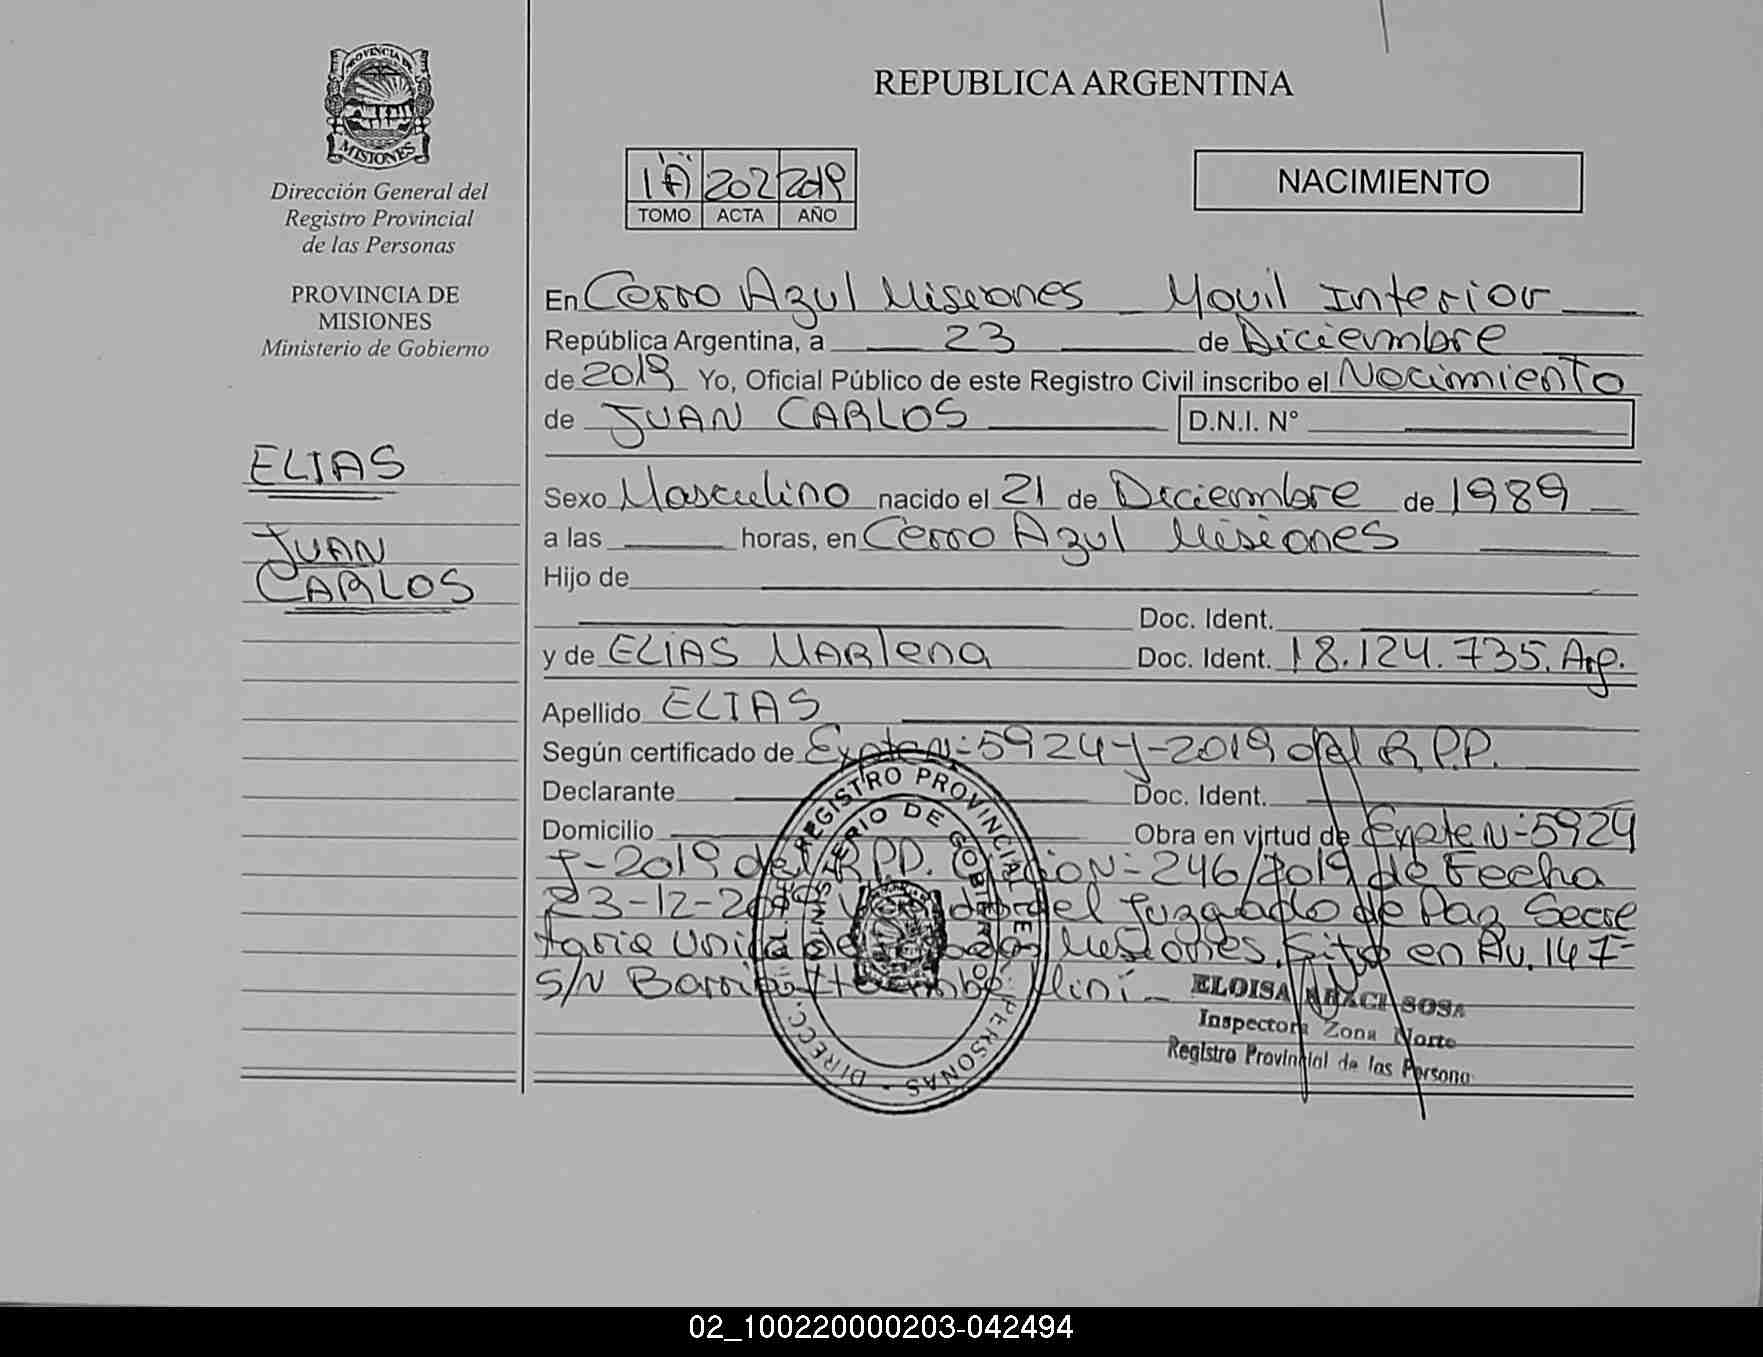 PROVINCIA DE
MISIONES
Dirección General del
Registro Provincial
de las Personas
PROVINCIA DE
MISIONES
Ministerio de Gobierno
ELIAS
JUAN
CARLOS
REPUBLICA ARGENTINA
1 "A" 202 2019
TOMO ACTA AÑO
NACIMIENTO
En Cerro Azul Misiones Movil Interior
República Argentina, a 23 de Diciembre
de 2019 Yo, Oficial Público de este Registro Civil inscribo el Nacimiento
de JUAN CARLOS D.N.I. N°
Sexo Masculino nacido el 21 de Diciembre de 1989
a las horas, en Cerro Azul Misiones
Hijo de
Doc. Ident.
y de ELIAS MARlena Doc. Ident. 18.124.735. Arg.
Apellido ELIAS
Según certificado de Expte N: 5924 J-2019 del R.P.P.
Declarante Doc. Ident.
Domicilio Obra en virtud de Expte N: 5924
J-2019 del R.P.P. N: 246/2019 de Fecha
23-12-2019 del Juzgado de Paz Secre
taria Unica de Misiones. Sito en Av. 147
S/N Barrio Mini
REGISTRO PROVINCIAL DE LAS PERSONAS - DIRECC.
MINISTERIO DE GOBIERNO
ELOISA ARACI SOSA
Inspectora Zona Norte
Registro Provincial de las Persona
02_100220000203-042494